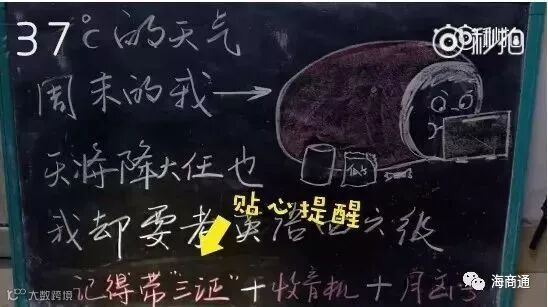 秒拍
37℃的天气
周末的我→
天将降大任也
贴心提醒
我却要考英语四六级
记得带"三证"+收音机+
大数跨境
海商通